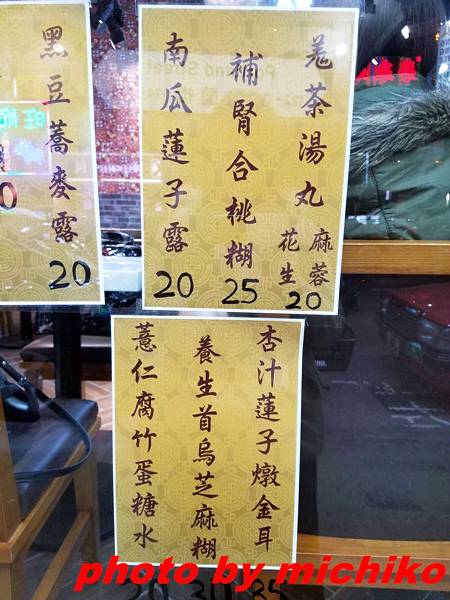 羗茶湯丸
麻蓉
花生
20
補腎合桃糊
25
南瓜蓮子露
20
黑豆蕎麥露
20
杏汁蓮子燉金耳
養生首烏芝麻糊
薏仁腐竹蛋糖水
photo by michiko